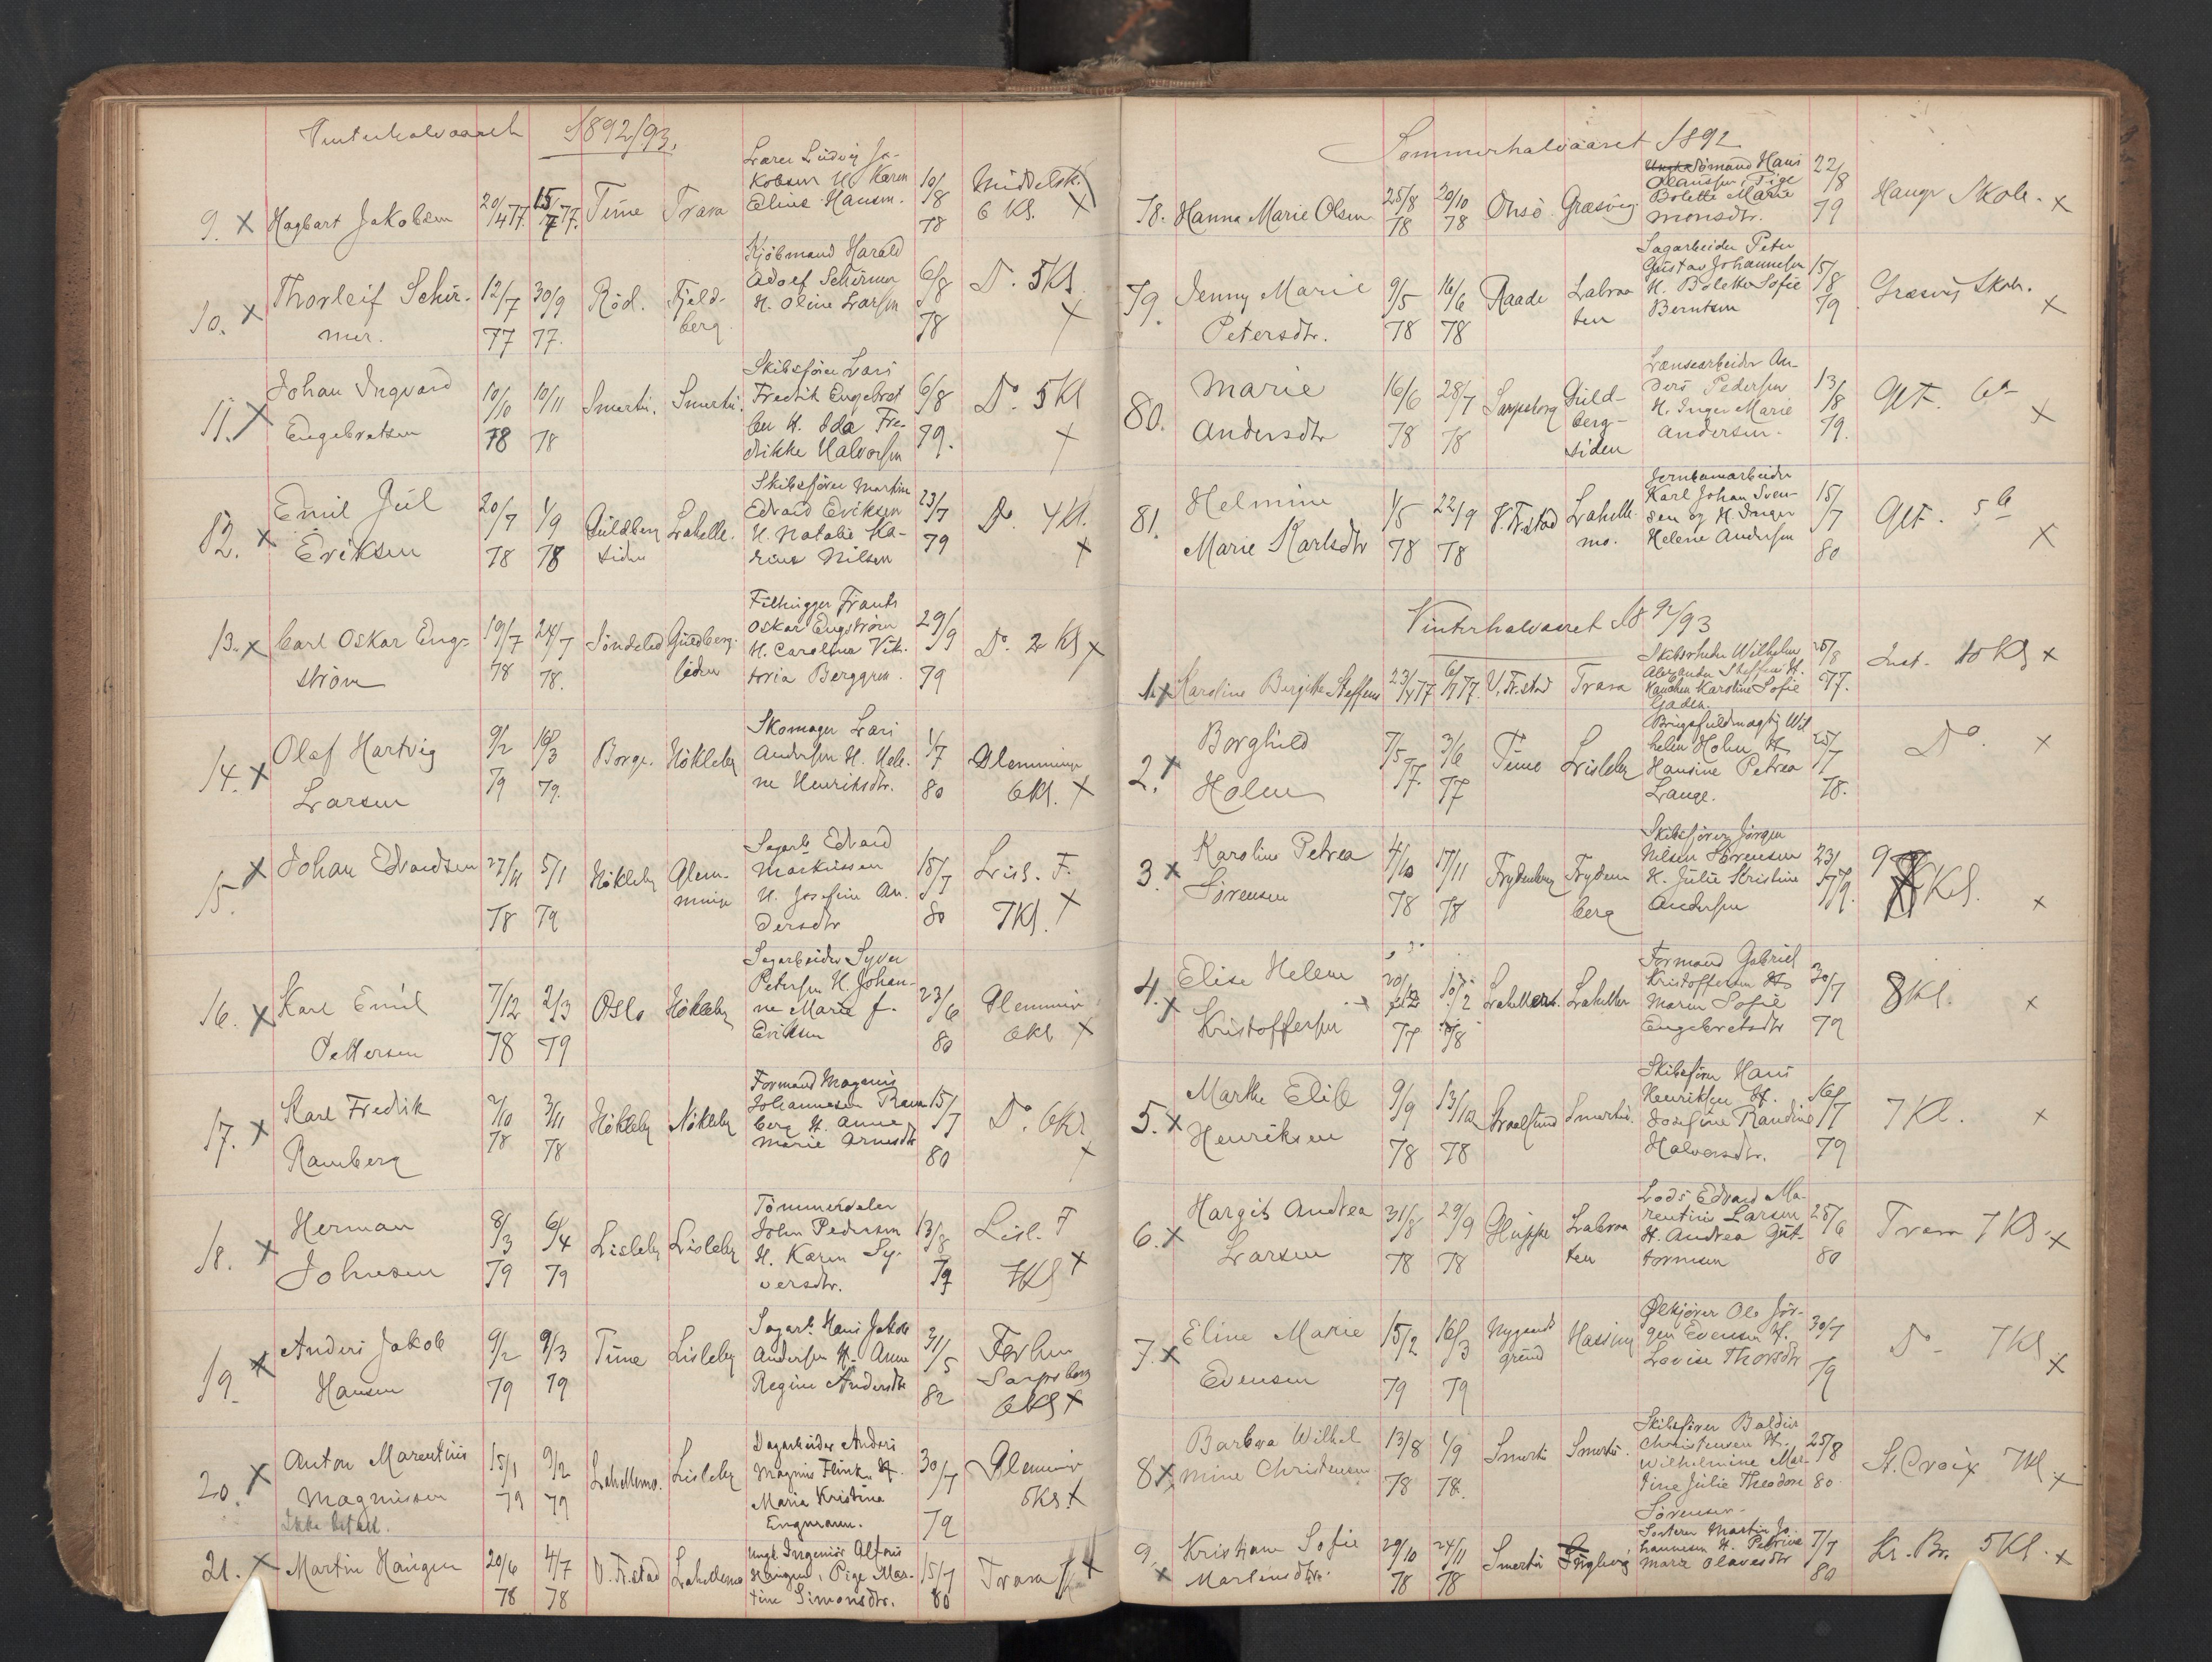 Vinterhalvaaret 1892/93.
9. x Hagbart Jakobsen 20/4 77. 15/7 77. Tune Trara Lærer Ludvig Jakobsen H. Karen Eline Hansen. 10/8 78 Middelsk. 6 Kl. x
10. x Thorleif Schirmer. 12/7 77 30/9 77. Röd. Fjeldberg Kjöbmand Harald Adolf Schirmer H. Oline Larsen 6/8 78 Do. 5 Kl x
11. x Johan Ingvard Engebretsen 10/10 78 10/11 78 Smertu. Smertu. Skibsförer Lars Fredrik Engebretsen H. Ida Fredrikke Halvorsen 6/8 79. Do. 5 Kl x
12. x Emil Jul Eriksen 20/7 78 1/9 78 Guldbergsiden Lahelle. Skibsförer Martin Edvard Eriksen H. Natalie Karine Nilsen 23/7 79 Do. 4 Kl. x
13. x Carl Oskar Engström 19/7 78 24/7 78. Söndeled Guldbergsiden Filhugger Frants Oskar Engström H. Carolina Viktoria Berggren. 29/9 79 Do. 2 Kl x
14. x Olaf Hartvig Larsen 9/2 79 16/3 79. Borge. Nökleby Skomager Lars Andersen H. Helene Henriksdtr. 1/7 80 Glemminge 6 Kl. x
15. x Johan Edvardsen 27/11 78 5/1 79 Nökleby Glemminge Sagarb. Edvard Markussen H. Josefine Andersdtr 15/7 80 Lisl. F. 7 Kl. x
16. x Karl Emil Pettersen 7/12 78 2/3 79 Oslo Nökleby Sagarbeider Syver Petersen H. Johanne Marie f. Eriksen 23/6 80 Glemminge 6 kl x
17. x Karl Fredrik Ramberg 2/10 78 3/11 78 Nökleby Nökleby Formand Magnus Johannesen Ramberg H. Anne Marie Arnesdtr 15/7 80 Do. 6 Kl x
18. x Herman Johnsen 8/3 79 6/4 79 Lisleby Lisleby Tömmerdeler John Pedersen H. Karen Syversdtr. 13/8 79 Lisl. F 7 Kl x
19. x Anders Jakob Hansen 9/2 79 9/3 79 Tune Lisleby Sagarb. Hans Jakob Andersen H. Anne Regine Andersdtr 31/5 82 Sarpsborg 6 Kl x
20. x Anton Marentius Magnussen 15/1 79 9/2 79 Lahellemo. Lisleby Dagarbeider Anders Magnus Flink H. Maria Kristina Engmann. 30/7 79 Glemminge 5 Kl. x
Ikke betalt.
21. x Martin Haugen 20/6 78 4/7 78 V. Fr.stad Lahellemo Ungk. Ingeniör Alfons Haugen, Pige Martine Simonsdtr. 15/7 80 Trara x
Sommerhalvaaret 1892
78. Hanna Marie Olsen 25/8 78 20/10 78 Onsö Græsvig Sömand Hans Olaussen, Pige Bolette Marie Monsdtr. 22/8 79 Hauge Skole. x
79. Jenny Marie Petersdtr. 9/5 78 16/6 78 Raade Labraaten Sagarbeider Peter Gustav Johannesen H. Bolette Sofie Berntsen 15/8 79 Græsvig Skole. x
80. Marie Andersdtr 16/6 78 28/7 78 Sarpsborg Guldbergsiden Lænsearbeider Anders Pedersen H. Inger Marie Andersen. 13/8 79. Glt. 6 x
81. Helmine Marie Karlsdtr 1/5 78 22/9 78 V. Fr.stad Lahellemo. Karl Johan Svensen og H. Inger Helene Andersen 15/7 80 Glt. 5 x
Vinterhalvaaret 1892/93
1. x Karoline Bergitte Steffens 23/4 77 6/7 77. V. Fr.stad Trara Skibsrheder Wilhelm Alexander Steffens H. Karoline Sofie Gaden. 25/8 77. Inst. 10 Kl x
2. x Borghild Holm 7/5 77. 3/6 77 Tune Lisleby Brugsfuldmægtig Wilhelm Holm H. Hansine Petrea Lange. 25/7 78. Do. x
3. x Karoline Petrea Sörensen 4/10 78 17/11 78 Frydenberg Frydenberg Skibsförer Jörgen Nilsen Sörensen H. Julie Kristine Andersen 23/7 79. 9 Kl. x
4. x Elise Helene Kristoffersen 20/12 77 10/2 78 Lahellemo. Lahelle Formand Gabriel Kristoffersen H. Maren Sofie Engebretsdtr 30/7 79 8 Kl. x
5. x Marthe Elise Henriksen 9/9 78 13/10 78 Smertu. Skibsförer Hans Henriksen H. Josefine Randine Halvorsdtr. 16/7 79 7 Kl. x
6. x Margit Andrea Larsen 31/8 78 29/9 78 Gluppe Labraaten Lods Edvard Marentius Larsen H. Andrea Guttormsen 25/6 80 Trara 7 Kl. x
7. x Eline Marie Evensen 15/2 79 16/3 79 Nygaardsgrund Hassing Ölkjörer Ole Jörgen Evensen H. Lovise Thorsdtr 30/7 79 Do - 7 Kl. x
8 x Barbra Wilhelmine Christensen 13/8 78 1/9 78. Smertu Smertu. Skibsförer Baldus Christensen H. Wilhelmine Martine Julie Theodore Sörensen. 25/8 80. St. Croix 7 Kl. x
9. x Kristiane Sofie Martinsdtr. 29/10 78 24/11 78 Smertu Sorterer Martin Johannesen H. Petrine Marie Olavesdtr 7/7 80 Kr. Br. 5 Kl. x